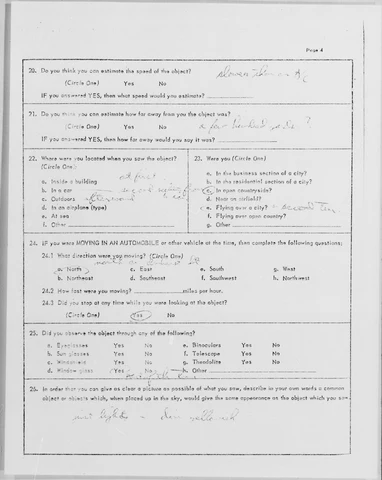 Page 4
20. Do you think you can estimate the speed of the object?
(Circle One) Yes No
IF you answered YES, then what speed would you estimate?
21. Do you think you can estimate how far away from you the object was?
(Circle One) Yes No
a few hundred yards?
IF you answered YES, then how far away would you say it was?
22. Where were you located when you saw the object?
(Circle One)
at first
a. Inside a building
b. In a car
c. Outdoors
d. In an airplane (type)
e. At sea
f. Other
23. Were you (Circle One)
a. In the business section of a city?
b. In the residential section of a city?
c. In open countryside?
d. Near an airfield?
e. Flying over a city?
f. Flying over open country?
g. Other
24. IF you were MOVING IN AN AUTOMOBILE or other vehicle at the time, then complete the following questions:
24.1 What direction were you moving? (Circle One)
a. North c. East e. South g. West
b. Northeast d. Southeast f. Southwest h. Northwest
24.2 How fast were you moving? miles per hour.
24.3 Did you stop at any time while you were looking at the object?
(Circle One) Yes No
25. Did you observe the object through any of the following?
a. Eyeglasses Yes No e. Binoculars Yes No
b. Sun glasses Yes No f. Telescope Yes No
c. Windshield Yes No g. Theodolite Yes No
d. Window glass Yes No h. Other
26. In order that you can give as clear a picture as possible of what you saw, describe in your own words a common
object or objects which, when placed up in the sky, would give the same appearance as the object which you saw.